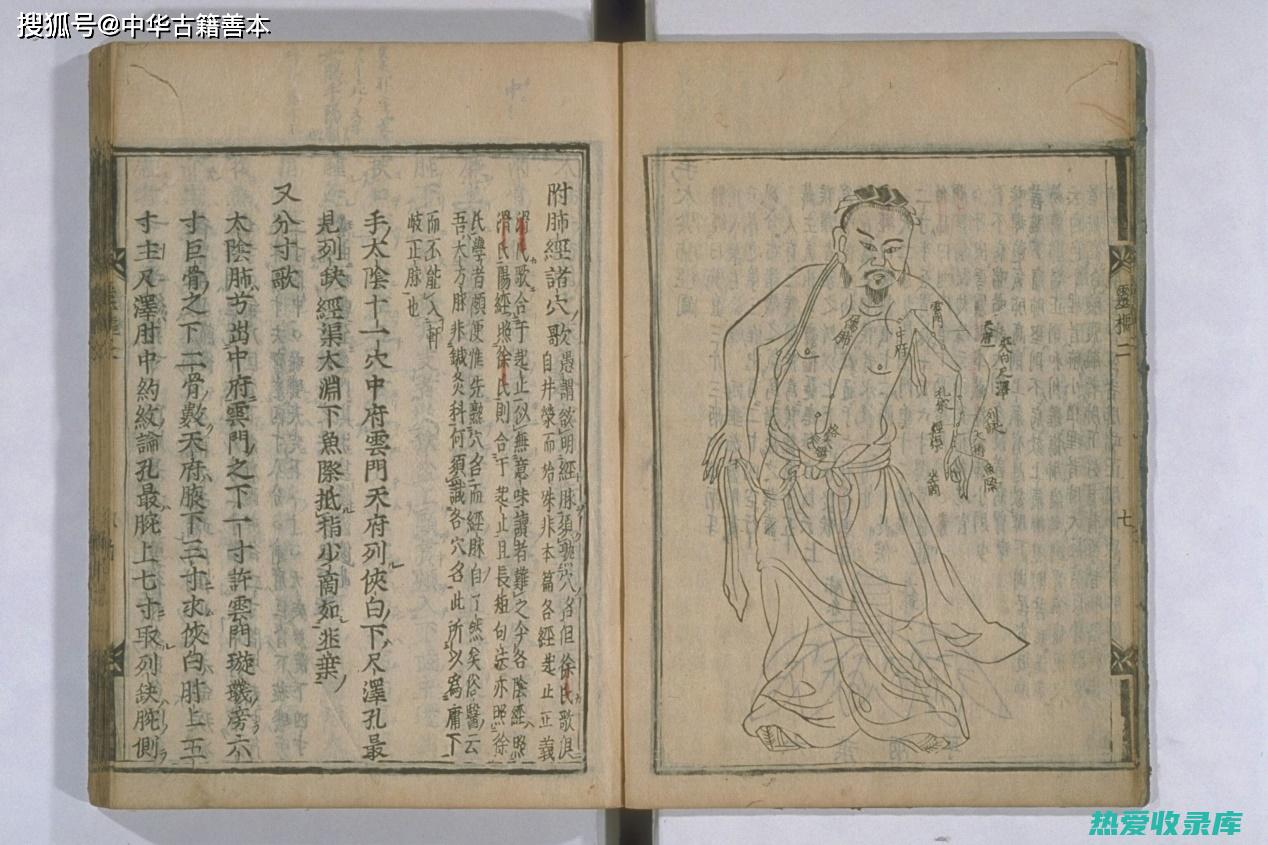 搜狐号@中华古籍善本
靈樞二
七
雲門
中府
天府
俠白
尺澤
孔最
列缺
經渠
魚際
少商
附肺經諸穴歌
愚謂欲明經脉須熟穴名但徐氏歌浪
自井榮而始殊非本篇各經起止正義
滑氏歌合于起止似無意味讀者難之今各陰經照
滑氏陽經照徐氏則合于起止且長短句法亦照徐
氏學者頗便惟先熟穴名而經脉自了然矣俗醫云
吾大方脉非鍼灸科何須識各穴名此所以爲庸下
而不能入軒
岐正脉也
手太陰十一穴中府雲門天府列俠白下尺澤孔最
見列缺經渠太淵下魚際抵指少商如韭葉
又分寸歌
太陰肺兮出中府雲門之下一寸許雲門璇璣傍六
寸巨骨之下二骨數天府腋下三寸求俠白肘上五
寸主尺澤肘中約紋論孔最腕上七寸取列缺腕側
热爱收录库